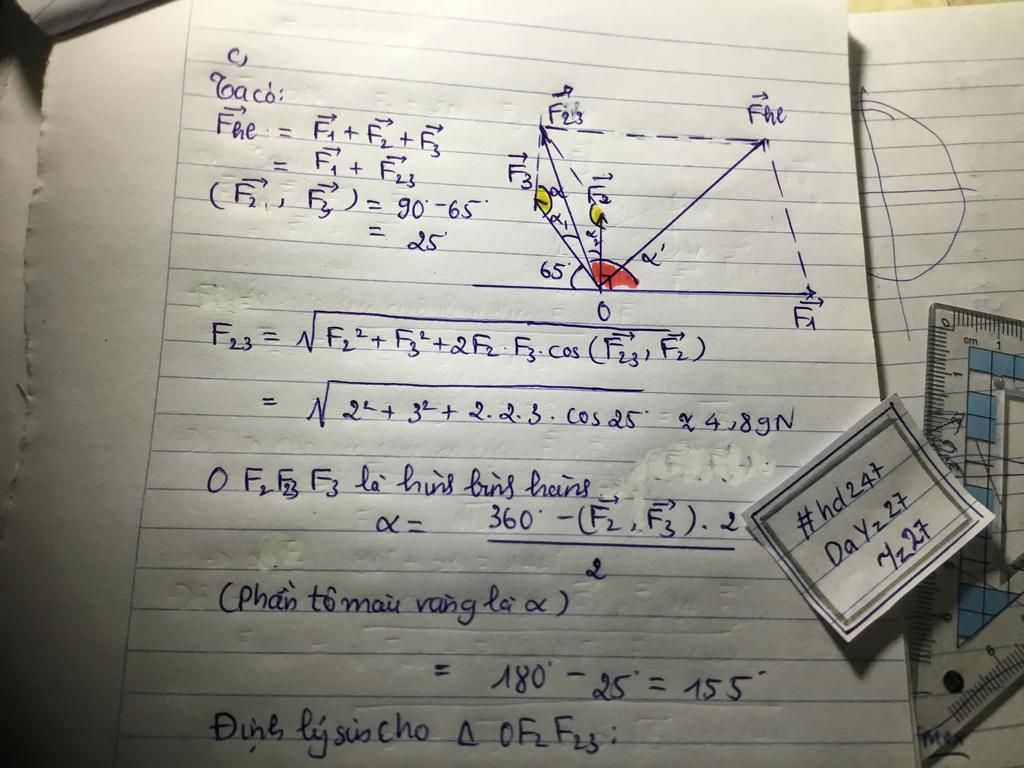 c,
Ta có:
F⃗hl = F⃗1 + F⃗2 + F⃗3
= F⃗1 + F⃗23
(F⃗2 , F⃗3) = 90° - 65°
= 25°
F⃗23
F⃗hl
F⃗3
α
F⃗2
α1
α2
α'
65°
O
F⃗1
F23 = √F2² + F3² + 2F2 . F3 . cos (F⃗23, F⃗2)
= √2² + 3² + 2. 2. 3 . cos25° ≈ 4,89N
O F2F23 F3 là hình bình hành
α = 360° - (F⃗2 , F⃗3) . 2
2
(Phần tô màu vàng là α)
= 180° - 25° = 155°
Định lý sin cho Δ OF2F23 :
#hd247
DaYz27
rz27
0
cm
1
1